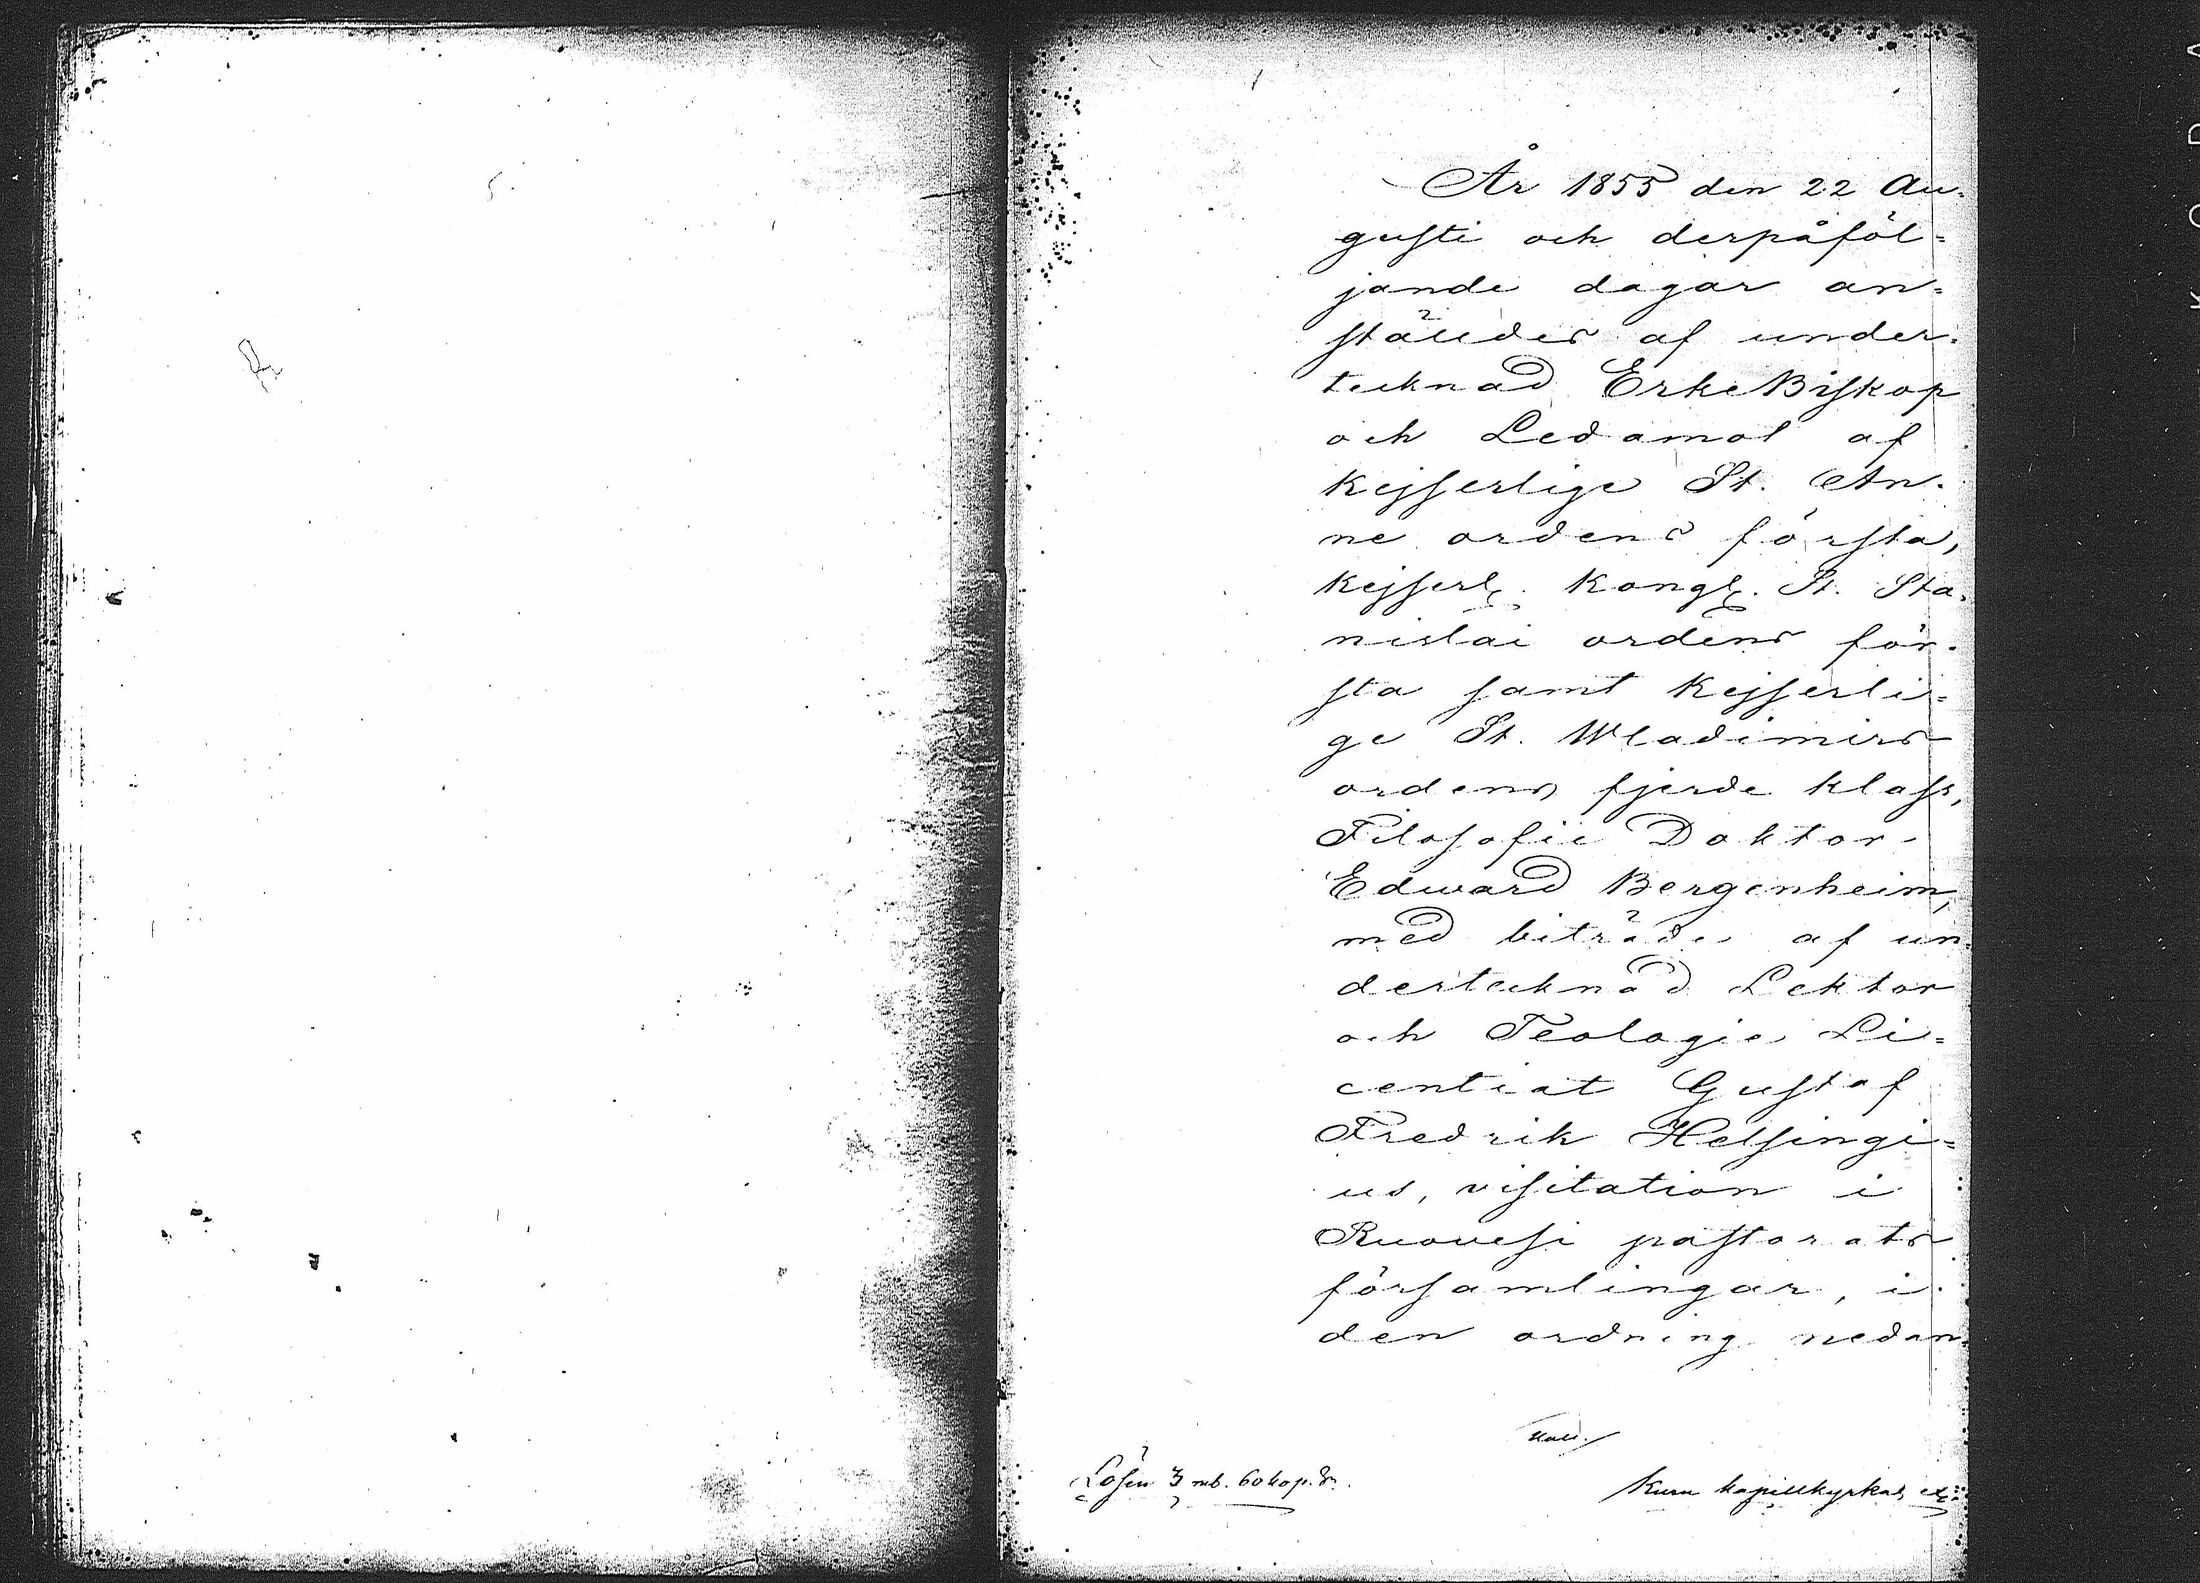 År 1855 den 22 Au=
gusti och derpåföl=
jande dagar an=
ställdes af under=
tecknad ErkeBiskop
och Ledamot af
Kejserlige St. An=
ne ordens första,
Kejserl. Kongl. St. Sta=
nislai ordens för=
sta samt Kejserli=
ge St. Wladimirs
ordens fjerde klass,
Filosofie Doktor
Edward Bergenheim,
med biträde af un=
dertecknad Lektor
och Teologie Li=
centiat Gustaf
Fredrik Helsingi=
us, visitation i
Ruovesi pastorats
församlingar, i
den ordning nedan=
Lösen 3 rub. 60 kop. Sr.
Kuru kapellkyrkas ex.